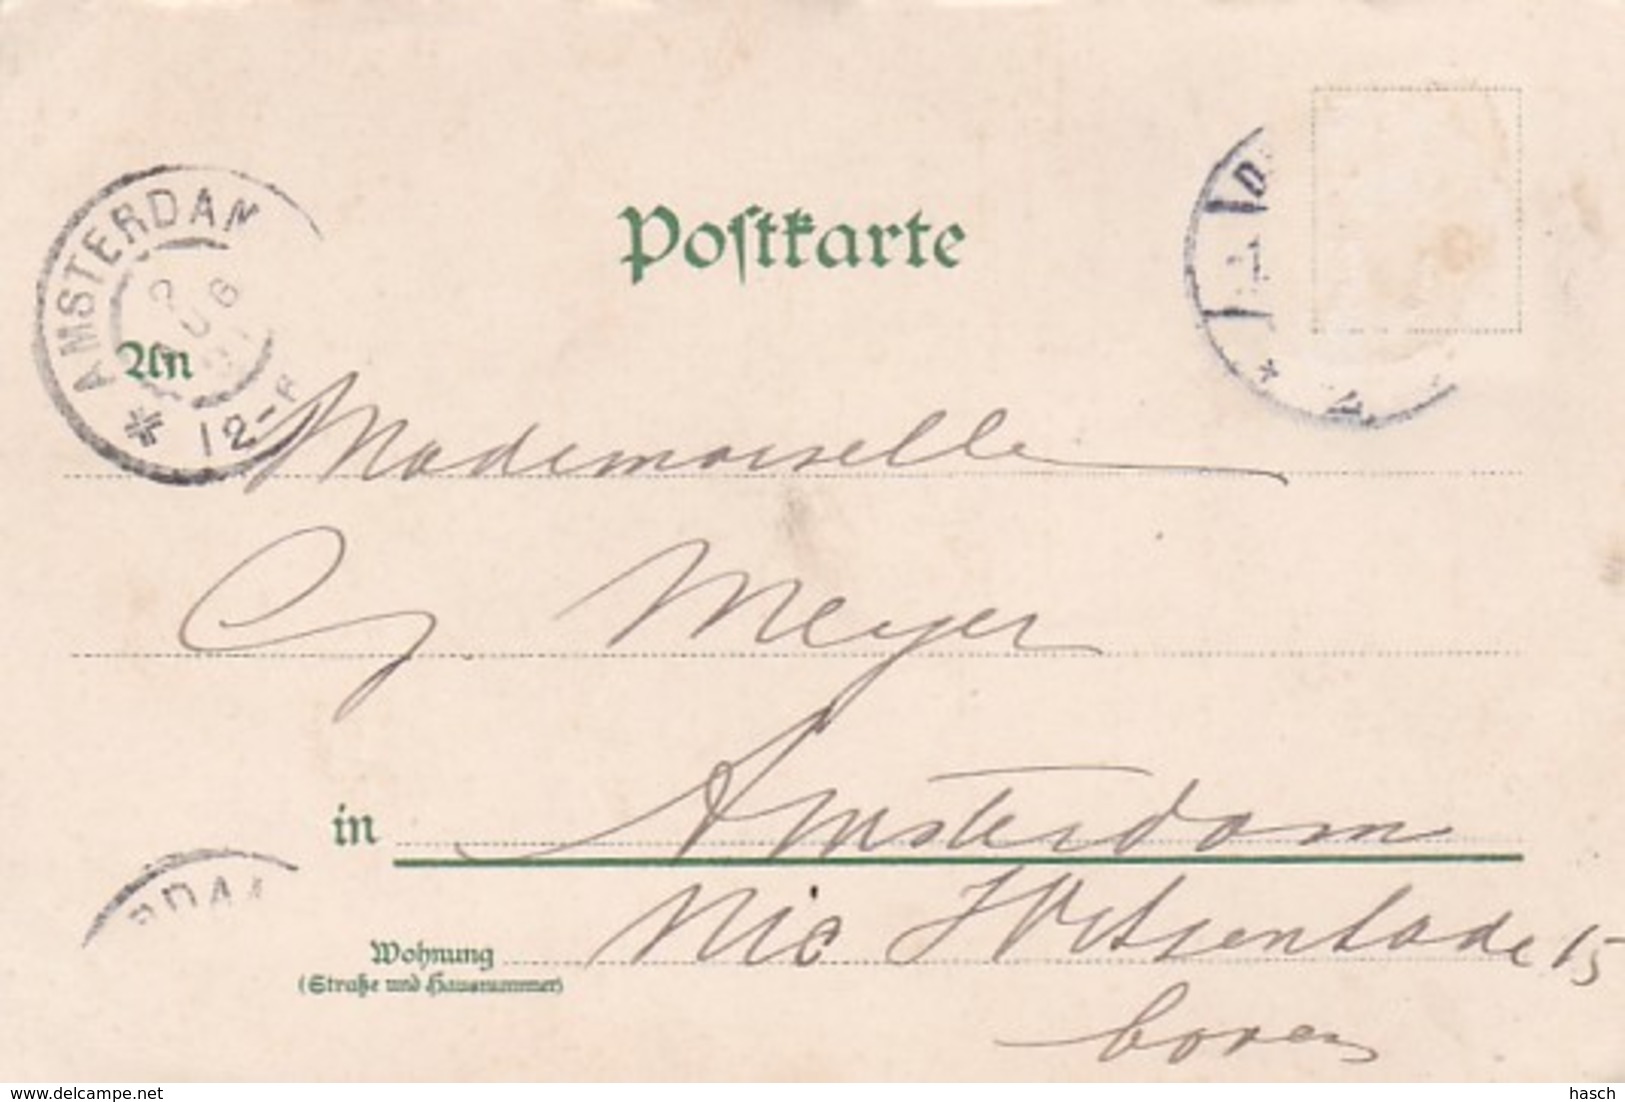 Postkarte
AMSTERDAM
AUG
12-
An
Mademoiselle
Cy. Meyer
in Amsterdam
RDAM
Wohnung Nic Witsenkade 15
(Straße und Hausnummer)
boven
www.delcampe.net
hasch